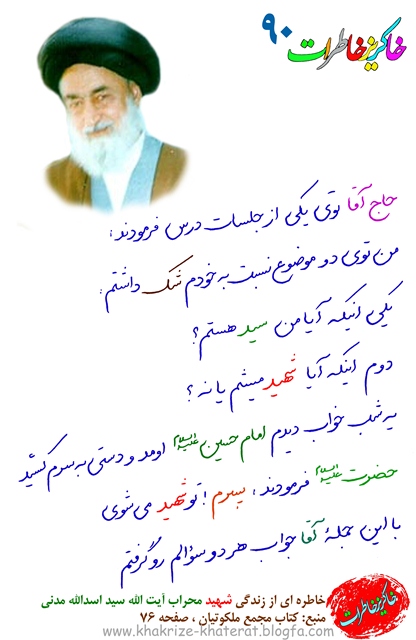 خاکریز خاطرات ۹۰
حاج آقا توی یکی از جلسات درس فرمودند:
من توی دو موضوع نسبت به خودم شک داشتم:
یکی اینکه آیا من سید هستم؟
دوم اینکه آیا شهید میشم یا نه؟
یه شب خواب دیدم امام حسین علیه السلام اومد و دستی به سرم کشید
حضرت علیه السلام فرمودند: پسرم! تو شهید می شوی
با این جملهٔ آقا جواب هر دو سؤالم رو گرفتم
خاطره ای از زندگی شهید محراب آیت الله سید اسدالله مدنی
منبع: کتاب مجمع ملکوتیان ، صفحه ۷۶
خاکریز خاطرات
www.khakrize-khaterat.blogfa.com